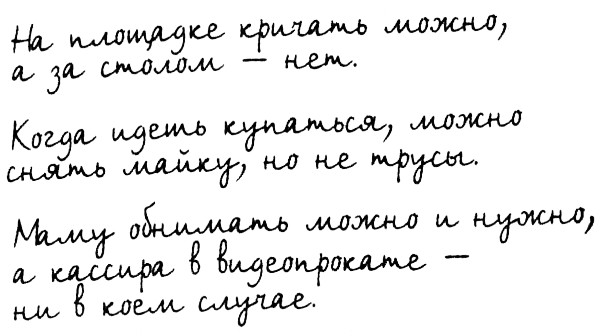 На площадке кричать можно,
а за столом — нет.
Когда идешь купаться, можно
снять майку, но не трусы.
Маму обнимать можно и нужно,
а кассира в видеопрокате —
ни в коем случае.